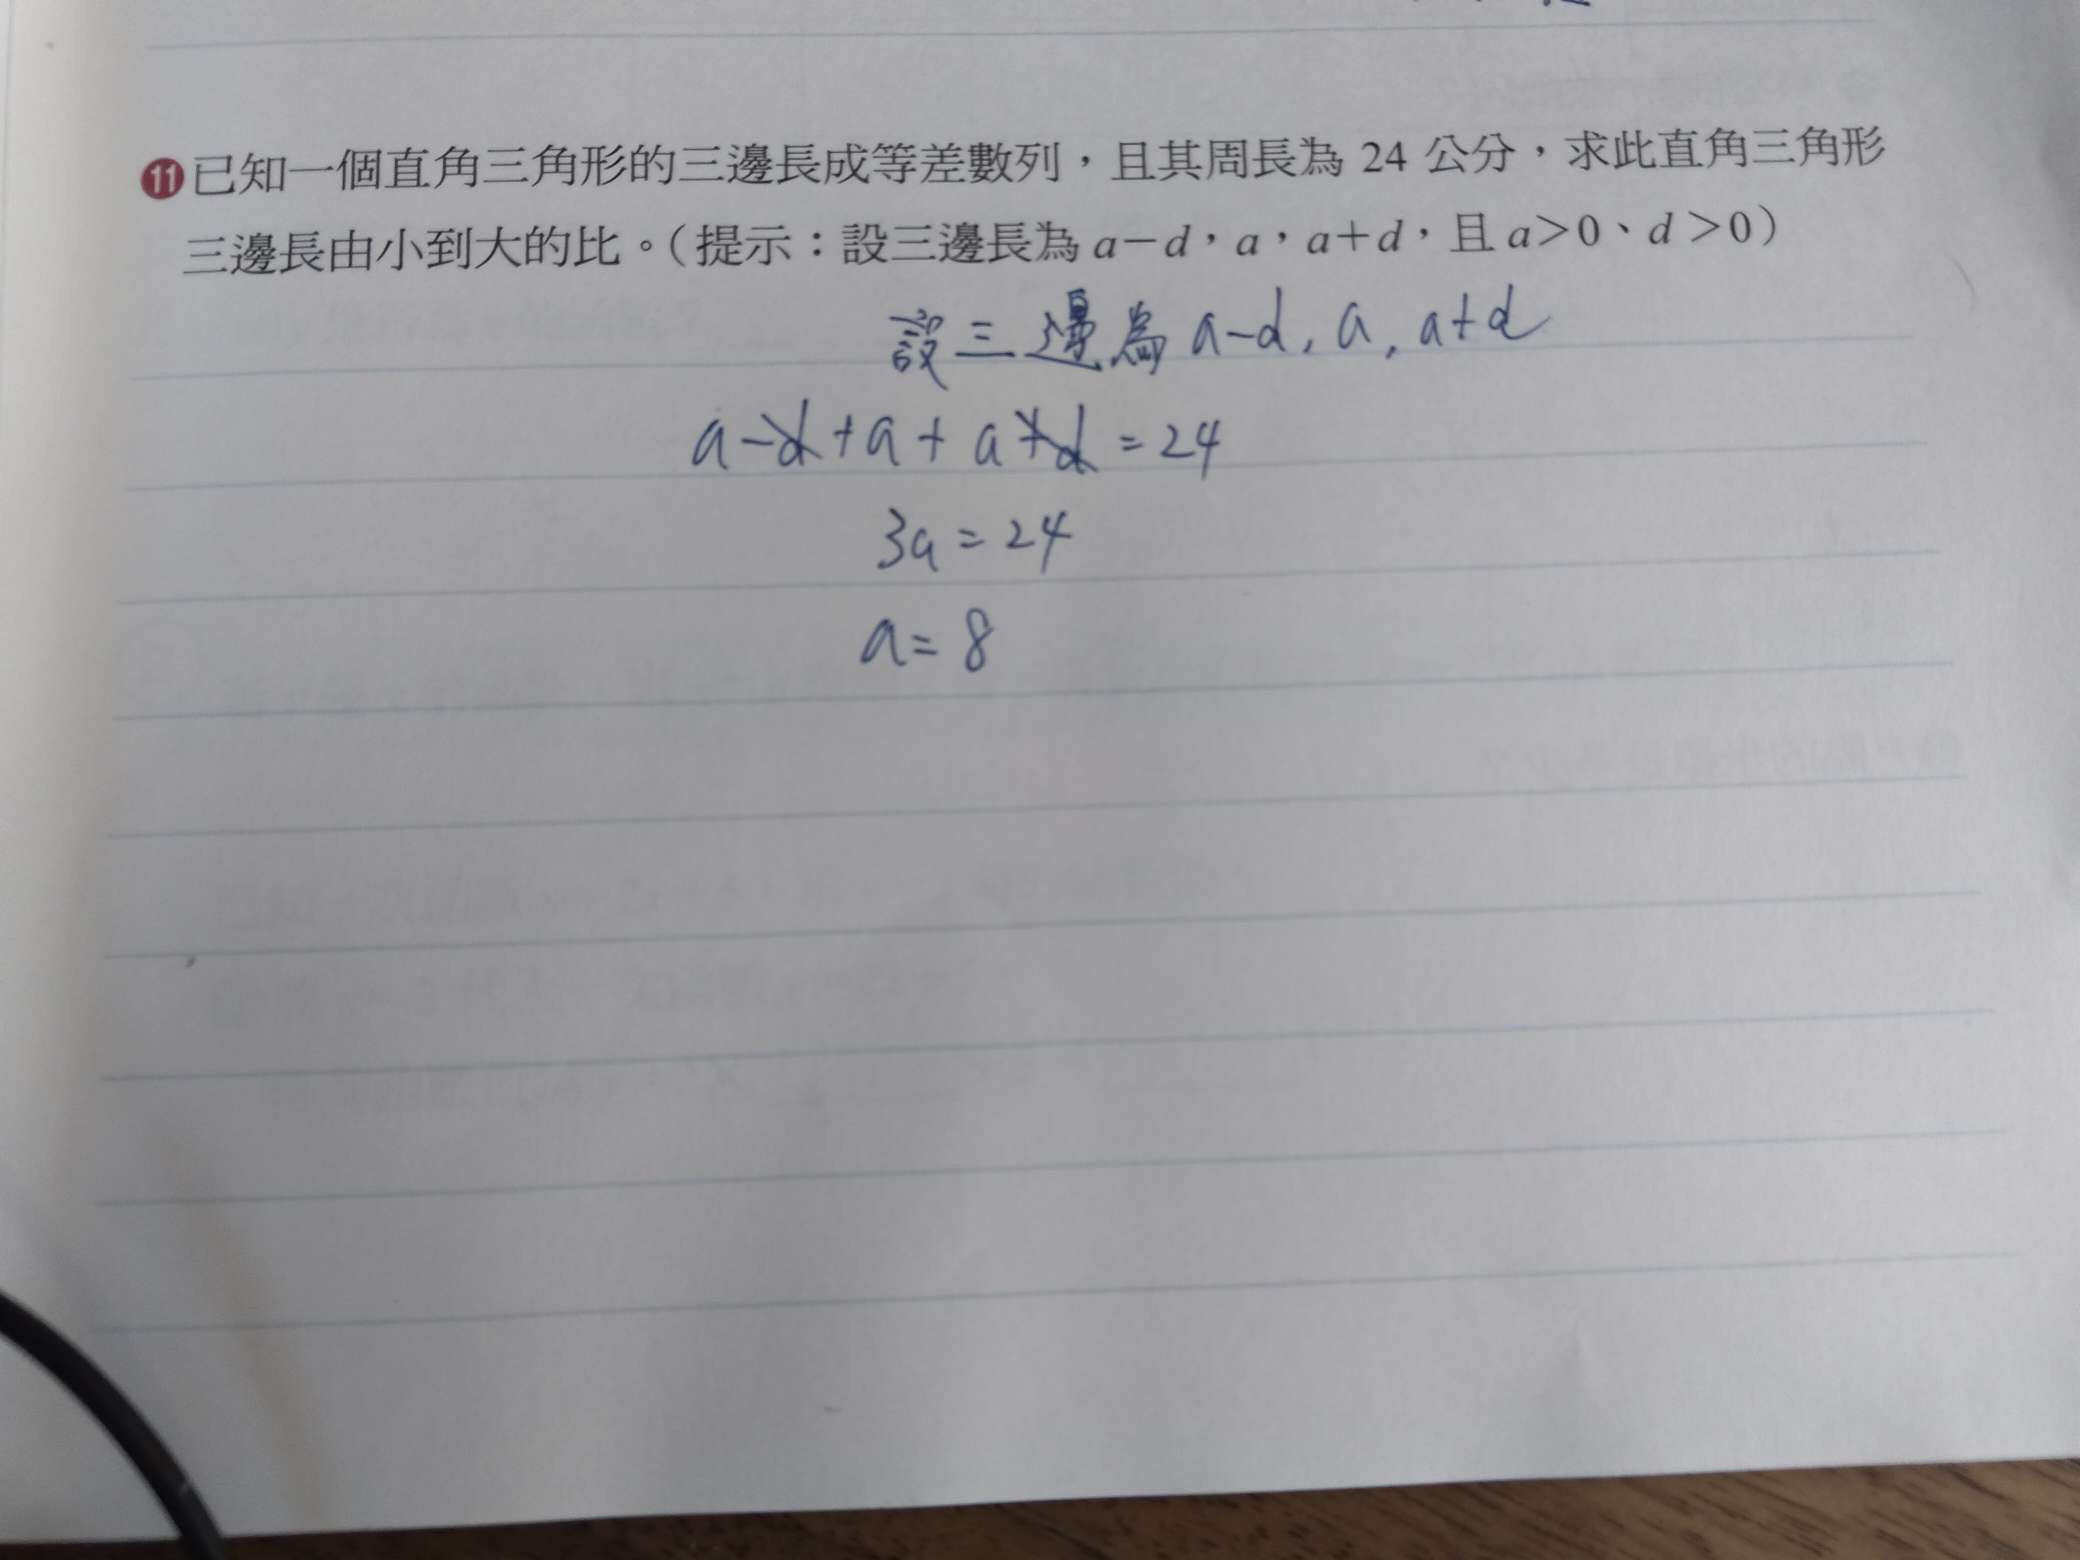 ⓫已知一個直角三角形的三邊長成等差數列，且其周長為 24 公分，求此直角三角形
三邊長由小到大的比。（提示：設三邊長為 a－d，a，a＋d，且 a＞0、d＞0）
設三邊為 a-d, a, a+d
a-d+a+a+d=24
3a=24
a=8